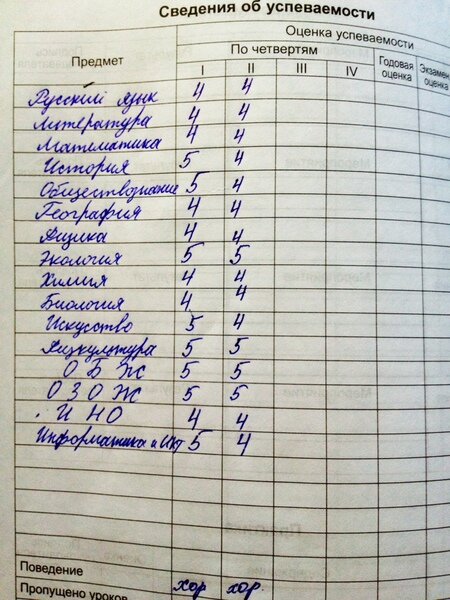 Сведения об успеваемости
Предмет
Оценка успеваемости
По четвертям
Годовая оценка
Экзамен. оценка
I II III IV
Русский язык 4 4
Литература 4 4
Математика 4 4
История 5 4
Обществознание 5 4
География 4 4
Физика 4 4
Экология 5 5
Химия 4 4
Биология 4 4
Искусство 5 4
Физкультура 5 5
ОБЖ 5 5
ОЗОЖ 5 5
ИНО 4 4
Информатика и ИКТ 5 4
Поведение хор хор.
Пропущено уроков